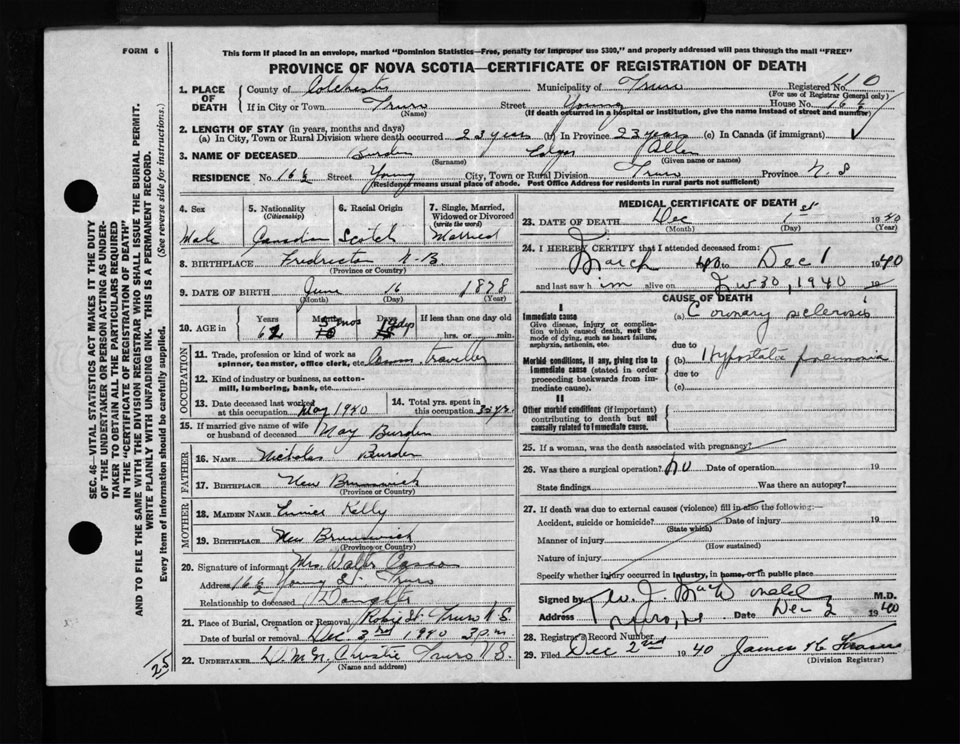 FORM 6
This form if placed in an envelope, marked "Dominion Statistics—Free, penalty for improper use $300," and properly addressed will pass through the mail "FREE"
PROVINCE OF NOVA SCOTIA—CERTIFICATE OF REGISTRATION OF DEATH
1. PLACE OF DEATH
County of Colchester Municipality of Truro Registered No. 110
(For use of Registrar General only)
If in City or Town Truro Street Young House No. 16½
(Name) (If death occurred in a hospital or institution, give the name instead of street and number)
2. LENGTH OF STAY (in years, months and days)
(a) In City, Town or Rural Division where death occurred 23 years (b) In Province 23 years (c) In Canada (if immigrant)
3. NAME OF DECEASED Burden Allen
(Surname) (Given name or names)
RESIDENCE No. 16½ Street Young City, Town or Rural Division Truro Province N.S
(Residence means usual place of abode. Post Office Address for residents in rural parts not sufficient)
4. Sex
Male
5. Nationality (Citizenship)
Canadian
6. Racial Origin
Scotch
7. Single, Married, Widowed or Divorced (write the word)
Married
8. BIRTHPLACE Fredricton N-B
(Province or Country)
9. DATE OF BIRTH June 16 1878
(Month) (Day) (Year)
10. AGE in Years Months Days If less than one day old
62 5 mos 15 dys hrs. or min.
OCCUPATION
11. Trade, profession or kind of work as spinner, teamster, office clerk, etc. Comm Traveller
12. Kind of industry or business, as cotton-mill, lumbering, bank, etc.
13. Date deceased last worked at this occupation May 1940
14. Total yrs. spent in this occupation 35 yrs.
15. If married give name of wife or husband of deceased May Burden
FATHER
16. NAME Nicholas Burden
17. BIRTHPLACE New Brunswick
(Province or Country)
MOTHER
18. MAIDEN NAME Eunice Kelly
19. BIRTHPLACE New Brunswick
(Province or Country)
20. Signature of informant Mrs. Walter
Address 16½ Young St. Truro
Relationship to deceased Daughter
21. Place of Burial, Cremation or Removal Robie St. Truro N.S.
Date of burial or removal Dec 3rd 1940 3 p.m.
22. UNDERTAKER Christie Truro N.S.
(Name and address)
MEDICAL CERTIFICATE OF DEATH
23. DATE OF DEATH Dec 1st 1940
(Month) (Day) (Year)
24. I HEREBY CERTIFY that I attended deceased from:
March 40 to Dec 1 1940
and last saw him alive on Nov 30, 1940 19
CAUSE OF DEATH
I
Immediate cause
Give disease, injury or complication which caused death, not the mode of dying, such as heart failure, asphyxia, asthenia, etc.
(a) Coronary sclerosis
due to
Morbid conditions, if any, giving rise to immediate cause (stated in order proceeding backwards from immediate cause).
(b) Hypostatic pneumonia
due to
(c)
II
Other morbid conditions (if important) contributing to death but not causally related to immediate cause.
25. If a woman, was the death associated with pregnancy?
26. Was there a surgical operation? No Date of operation 19
State findings Was there an autopsy?
27. If death was due to external causes (violence) fill in also the following:—
Accident, suicide or homicide? Date of injury 19
(State which)
Manner of injury
(How sustained)
Nature of injury
Specify whether injury occurred in industry, in home, or in public place
Signed by W. J. MacDonald M.D.
Address Truro, N.S. Date Dec 2 1940
28. Registrar's Record Number
29. Filed Dec 2nd 1940 James
(Division Registrar)
SEC. 46—VITAL STATISTICS ACT MAKES IT THE DUTY OF THE UNDERTAKER OR PERSON ACTING AS UNDERTAKER TO OBTAIN ALL THE PARTICULARS REQUIRED IN THE "CERTIFICATE OF REGISTRATION OF DEATH" AND TO FILE THE SAME WITH THE DIVISION REGISTRAR WHO SHALL ISSUE THE BURIAL PERMIT.
WRITE PLAINLY WITH UNFADING INK. THIS IS A PERMANENT RECORD.
Every item of information should be carefully supplied. (See reverse side for instructions.)
25